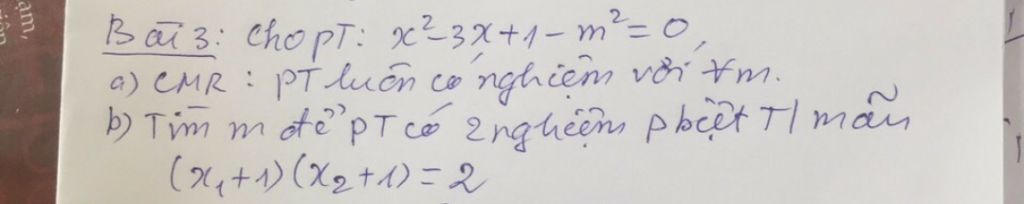 Bài 3: Cho pT: x²-3x+1-m²=0,
a) CMR: pT luôn có nghiệm với ∀m.
b) Tìm m để pT có 2 nghiệm pbiệt T/mãn
(x₁+1)(x₂+1)=2